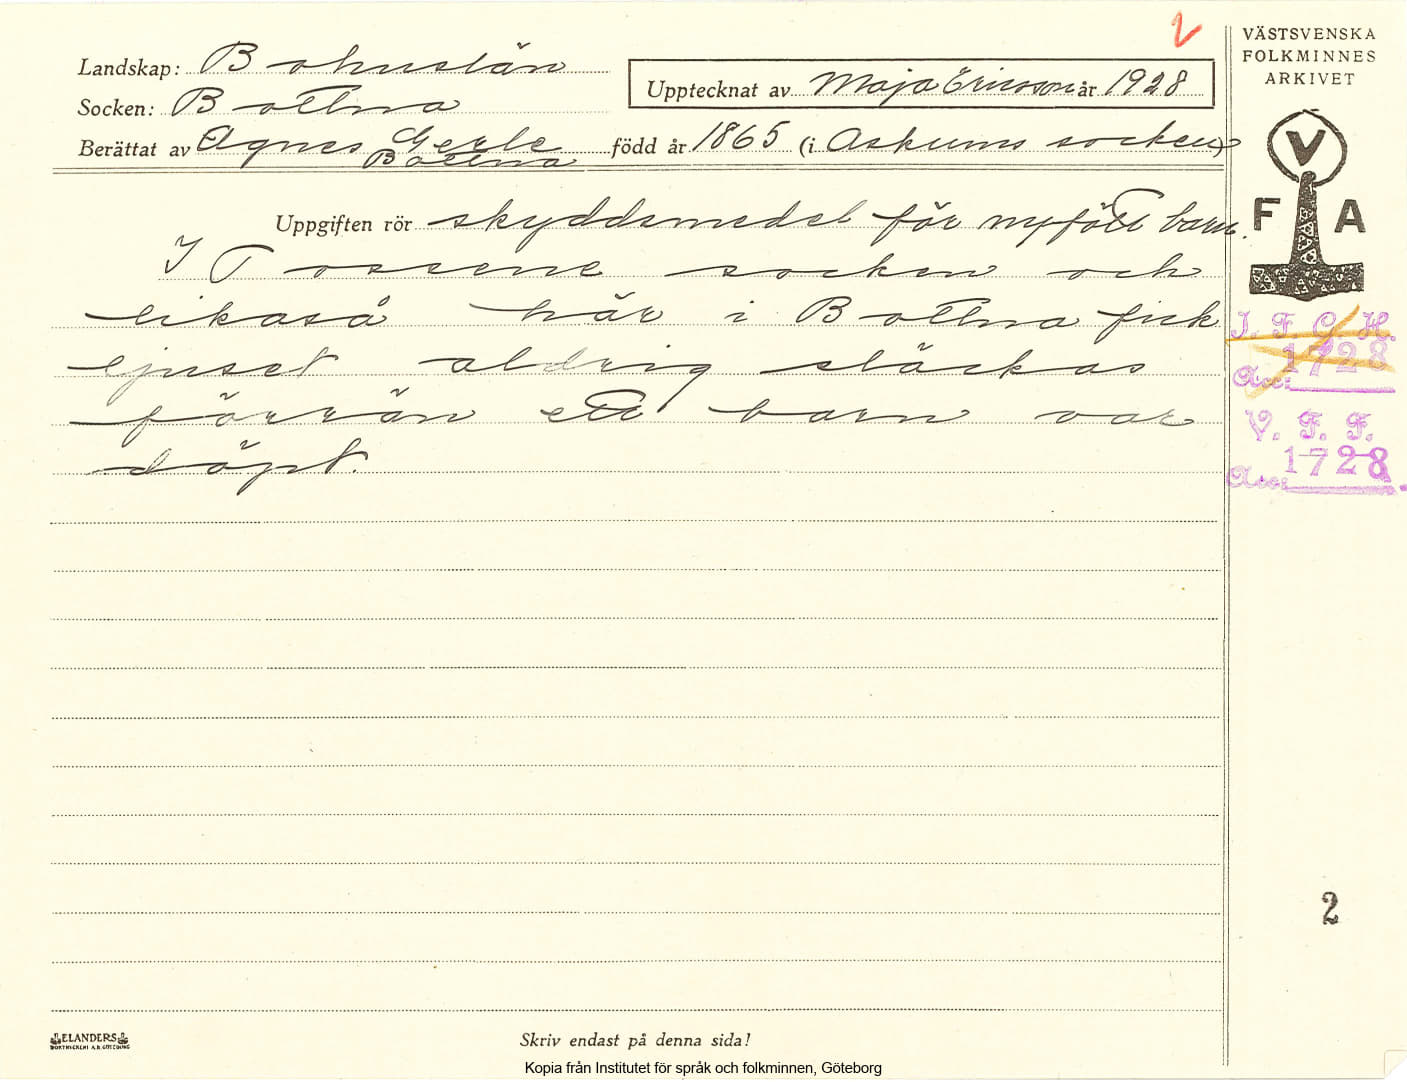 2
VÄSTSVENSKA
FOLKMINNES
ARKIVET
Landskap: Bohuslän
Upptecknat av Maja Ericsson år 1928
Socken: Bottna
Berättat av Agnes Gerle född år 1865 (i Askums socken)
Bottna
V
F A
Uppgiften rör skyddsmedel för nyfött barn.
I Tossene socken och
likaså här i Bottna fick
ljuset aldrig släckas
förrän ett barn var
döpt.
I. F. G. H.
1728
Acc:
V. F. F.
1728
Acc:
2
ELANDERS
BOKTRYCKERI A.B. GÖTEBORG
Skriv endast på denna sida!
Kopia från Institutet för språk och folkminnen, Göteborg